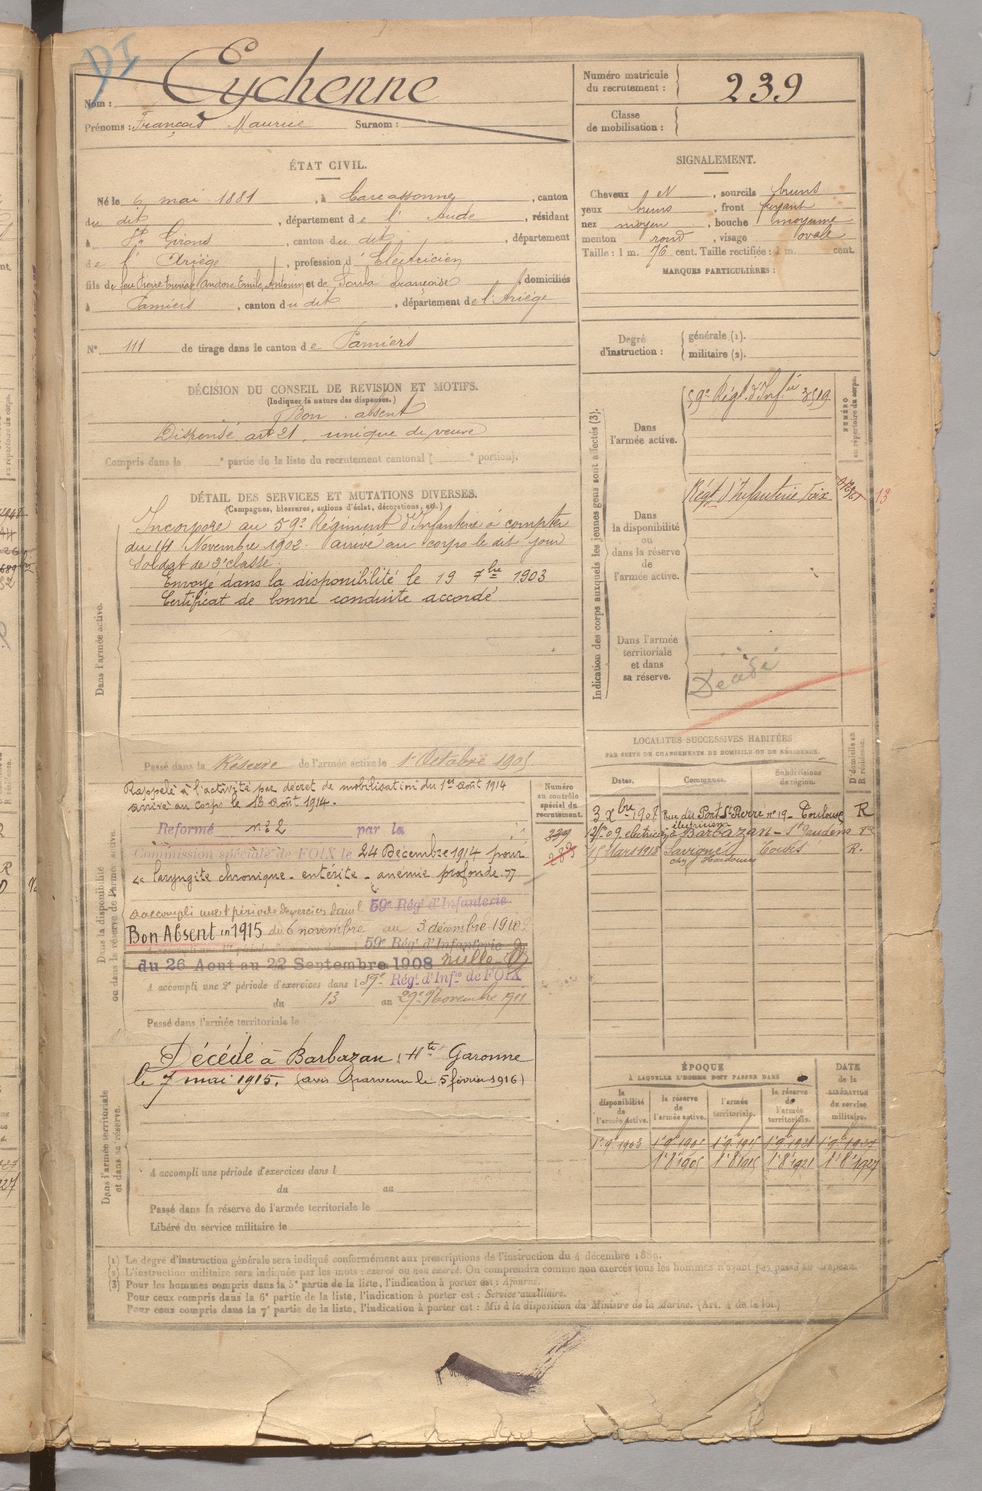 DI
Nom : Eychenne
Prénoms : François Maurice Surnom :
Numéro matricule du recrutement : 239
Classe de mobilisation :
ÉTAT CIVIL.
Né le 6 mai 1881, à Carcassonne, canton
du dit, département de l'Aude, résidant
à St Girons, canton du dit, département
de l'Ariège, profession d'Electricien
fils de feu Emile, Antonin et de Françoise, domiciliés
à Pamiers, canton du dit, département de l'Ariège
N° 111 de tirage dans le canton de Pamiers
DÉCISION DU CONSEIL DE REVISION ET MOTIFS.
(Indiquer la nature des dispenses.)
Bon absent
Dispensé art 21. unique de veuve
Compris dans la e partie de la liste du recrutement cantonal ( e portion).
DÉTAIL DES SERVICES ET MUTATIONS DIVERSES.
(Campagnes, blessures, actions d'éclat, décorations, etc.)
Dans l'armée active.
Incorporé au 59e Régiment d'Infanterie à compter
du 14 Novembre 1902. arrivé au corps le dit jour
Soldat de 2e classe.
Envoyé dans la disponibilité le 19 7bre 1903
Certificat de bonne conduite accordé
Passé dans la Réserve de l'armée active le 1er Octobre 1905
Dans la disponibilité ou dans la réserve de l'armée active.
Rappelé à l'activité par décret de mobilisation du 1er août 1914
arrivé au corps le 13 août 1914.
Réformé n° 2 par la
Commission spéciale de FOIX le 24 Décembre 1914 pour
« laryngite chronique - entérite - anémie profonde »
a accompli une 1 période d'exercices dans l 59e Rég. d'Infanterie
Bon Absent en 1915 du 6 novembre au 3 décembre 1910
59e Rég. d'Infanterie
du 26 Aout au 22 Septembre 1908 nulle
A accompli une 2e période d'exercices dans l 59e Rég. d'Infie de FOIX
du 13 au 29 Novembre 1911
Passé dans l'armée territoriale le
Dans l'armée territoriale et dans sa réserve.
Décédé à Barbazan (Hte Garonne
le 7 mai 1915. (avis parvenu le 5 février 1916)
A accompli une période d'exercices dans l
du au
Passé dans la réserve de l'armée territoriale le
Libéré du service militaire le
Numéro au contrôle spécial du recrutement.
399
283
SIGNALEMENT.
Cheveux et, sourcils bruns
yeux bruns, front fuyant
nez moyen, bouche moyenne
menton rond, visage ovale
Taille : 1 m. 76 cent. Taille rectifiée : 1 m. cent.
MARQUES PARTICULIÈRES :
Degré d'instruction : générale (1).
militaire (2).
Indication des corps auxquels les jeunes gens sont affectés (3).
NUMÉRO au répertoire du corps.
Dans l'armée active.
59e Régt. d'Inf.ie 3519
Dans la disponibilité ou dans la réserve de l'armée active.
Régt d'Infanterie Foix
13
Dans l'armée territoriale et dans sa réserve.
Décédé
LOCALITÉS SUCCESSIVES HABITÉES
PAR SUITE DE CHANGEMENTS DE DOMICILE OU DE RÉSIDENCE.
Dates. Communes. Subdivisions de région. D. domicile ou R. résidence.
3 Xbre 1908 Rue du Pont St Pierre n° 19 - Toulouse R
électricien à Barbazan - St Gaudens
15 Mars 1913 R.
ÉPOQUE
À LAQUELLE L'HOMME DOIT PASSER DANS
DATE de la LIBÉRATION du service militaire.
la disponibilité de l'armée active. la réserve de l'armée active. l'armée territoriale. la réserve de l'armée territoriale.
1er 9bre 1903
1er 8bre 1905 1er 8bre 1915 1er 8bre 1921 1er 8bre 1927
(1) Le degré d'instruction générale sera indiqué conformément aux prescriptions de l'instruction du 4 décembre 1889.
(2) L'instruction militaire sera indiquée par les mots : exercé ou non exercé. On comprendra comme non exercés tous les hommes n'ayant pas passé au drapeau.
(3) Pour les hommes compris dans la 5e partie de la liste, l'indication à porter est : Ajourné.
Pour ceux compris dans la 6e partie de la liste, l'indication à porter est : Service auxiliaire.
Pour ceux compris dans la 7e partie de la liste, l'indication à porter est : Mis à la disposition du Ministre de la Marine. (Art. 4 de la loi.)